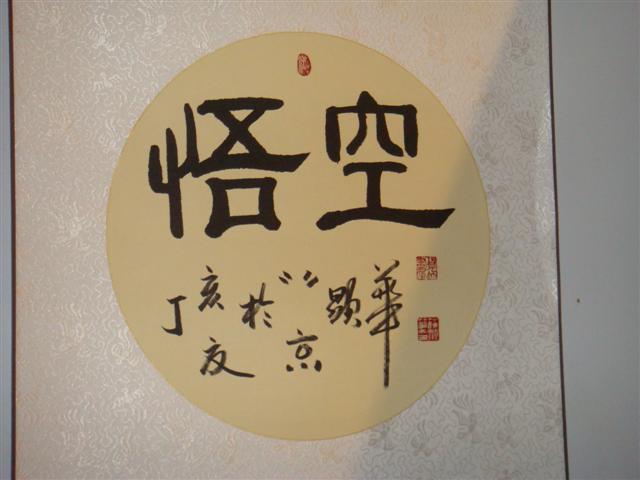 悟空
丁亥夏於北京顯華